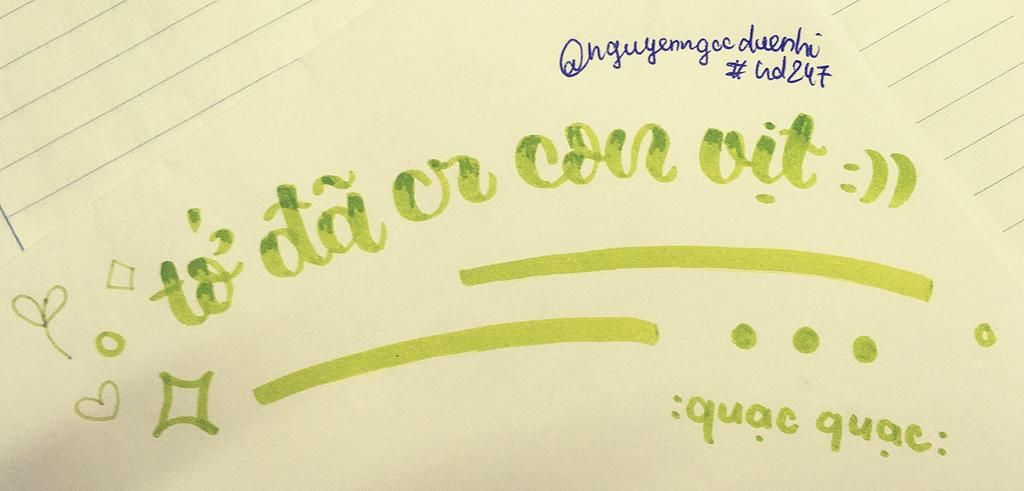 @nguyenngocduenhi
#hd247
tớ đã cr con vịt :))
:quạc quạc: